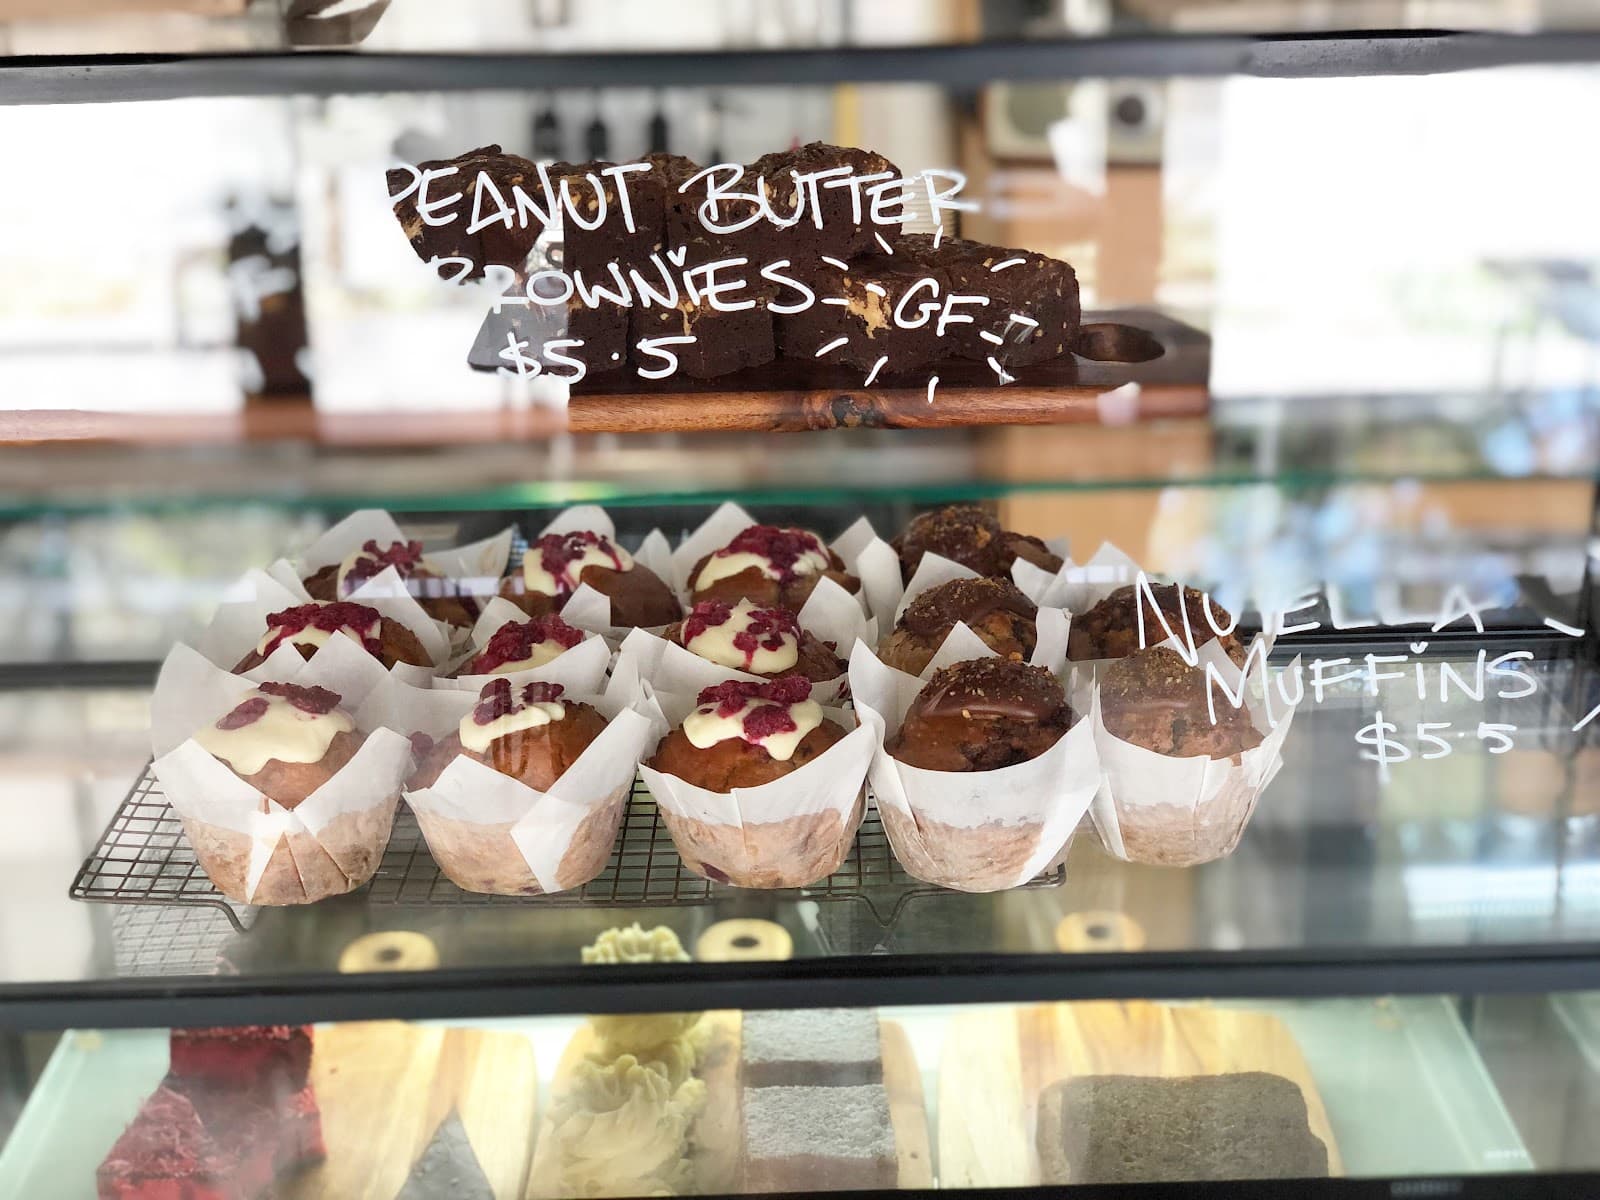 PEANUT BUTTER
BROWNIES GF
$5.5
NUTELLA
MUFFINS
$5.5